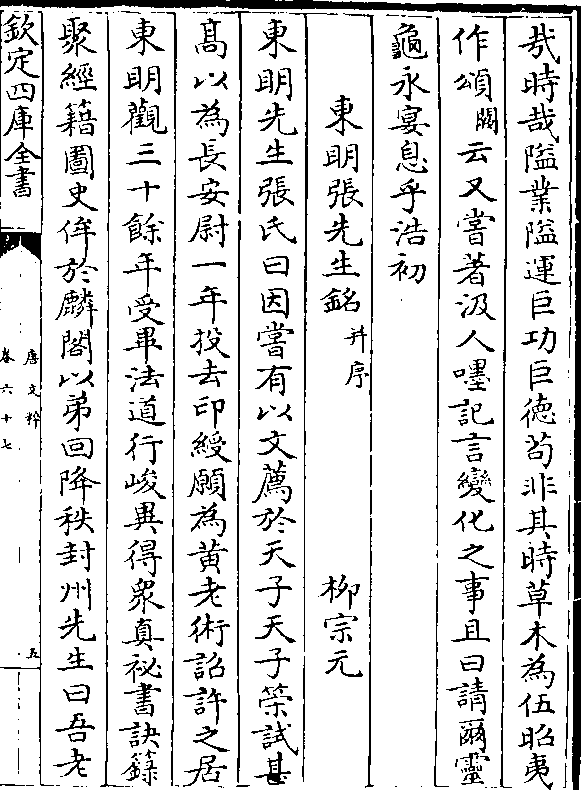 哉時哉隘業隘運巨功巨徳苟非其時草木為伍昭夷
作頌闕云又嘗著汲人嚜記言變化之事且曰請爾靈
龜永宴息乎浩初
東明張先生銘并序　柳宗元
東明先生張氏曰因嘗有以文薦於天子天子策試甚
髙以為長安尉一年投去印綬願為黃老術詔許之居
東明觀三十餘年受畢法道行峻異得衆真祕書訣籙
聚經籍圖史侔於麟閣以弟回降秩封州先生曰吾老
欽定四庫全書
唐文粹
卷六十七
五